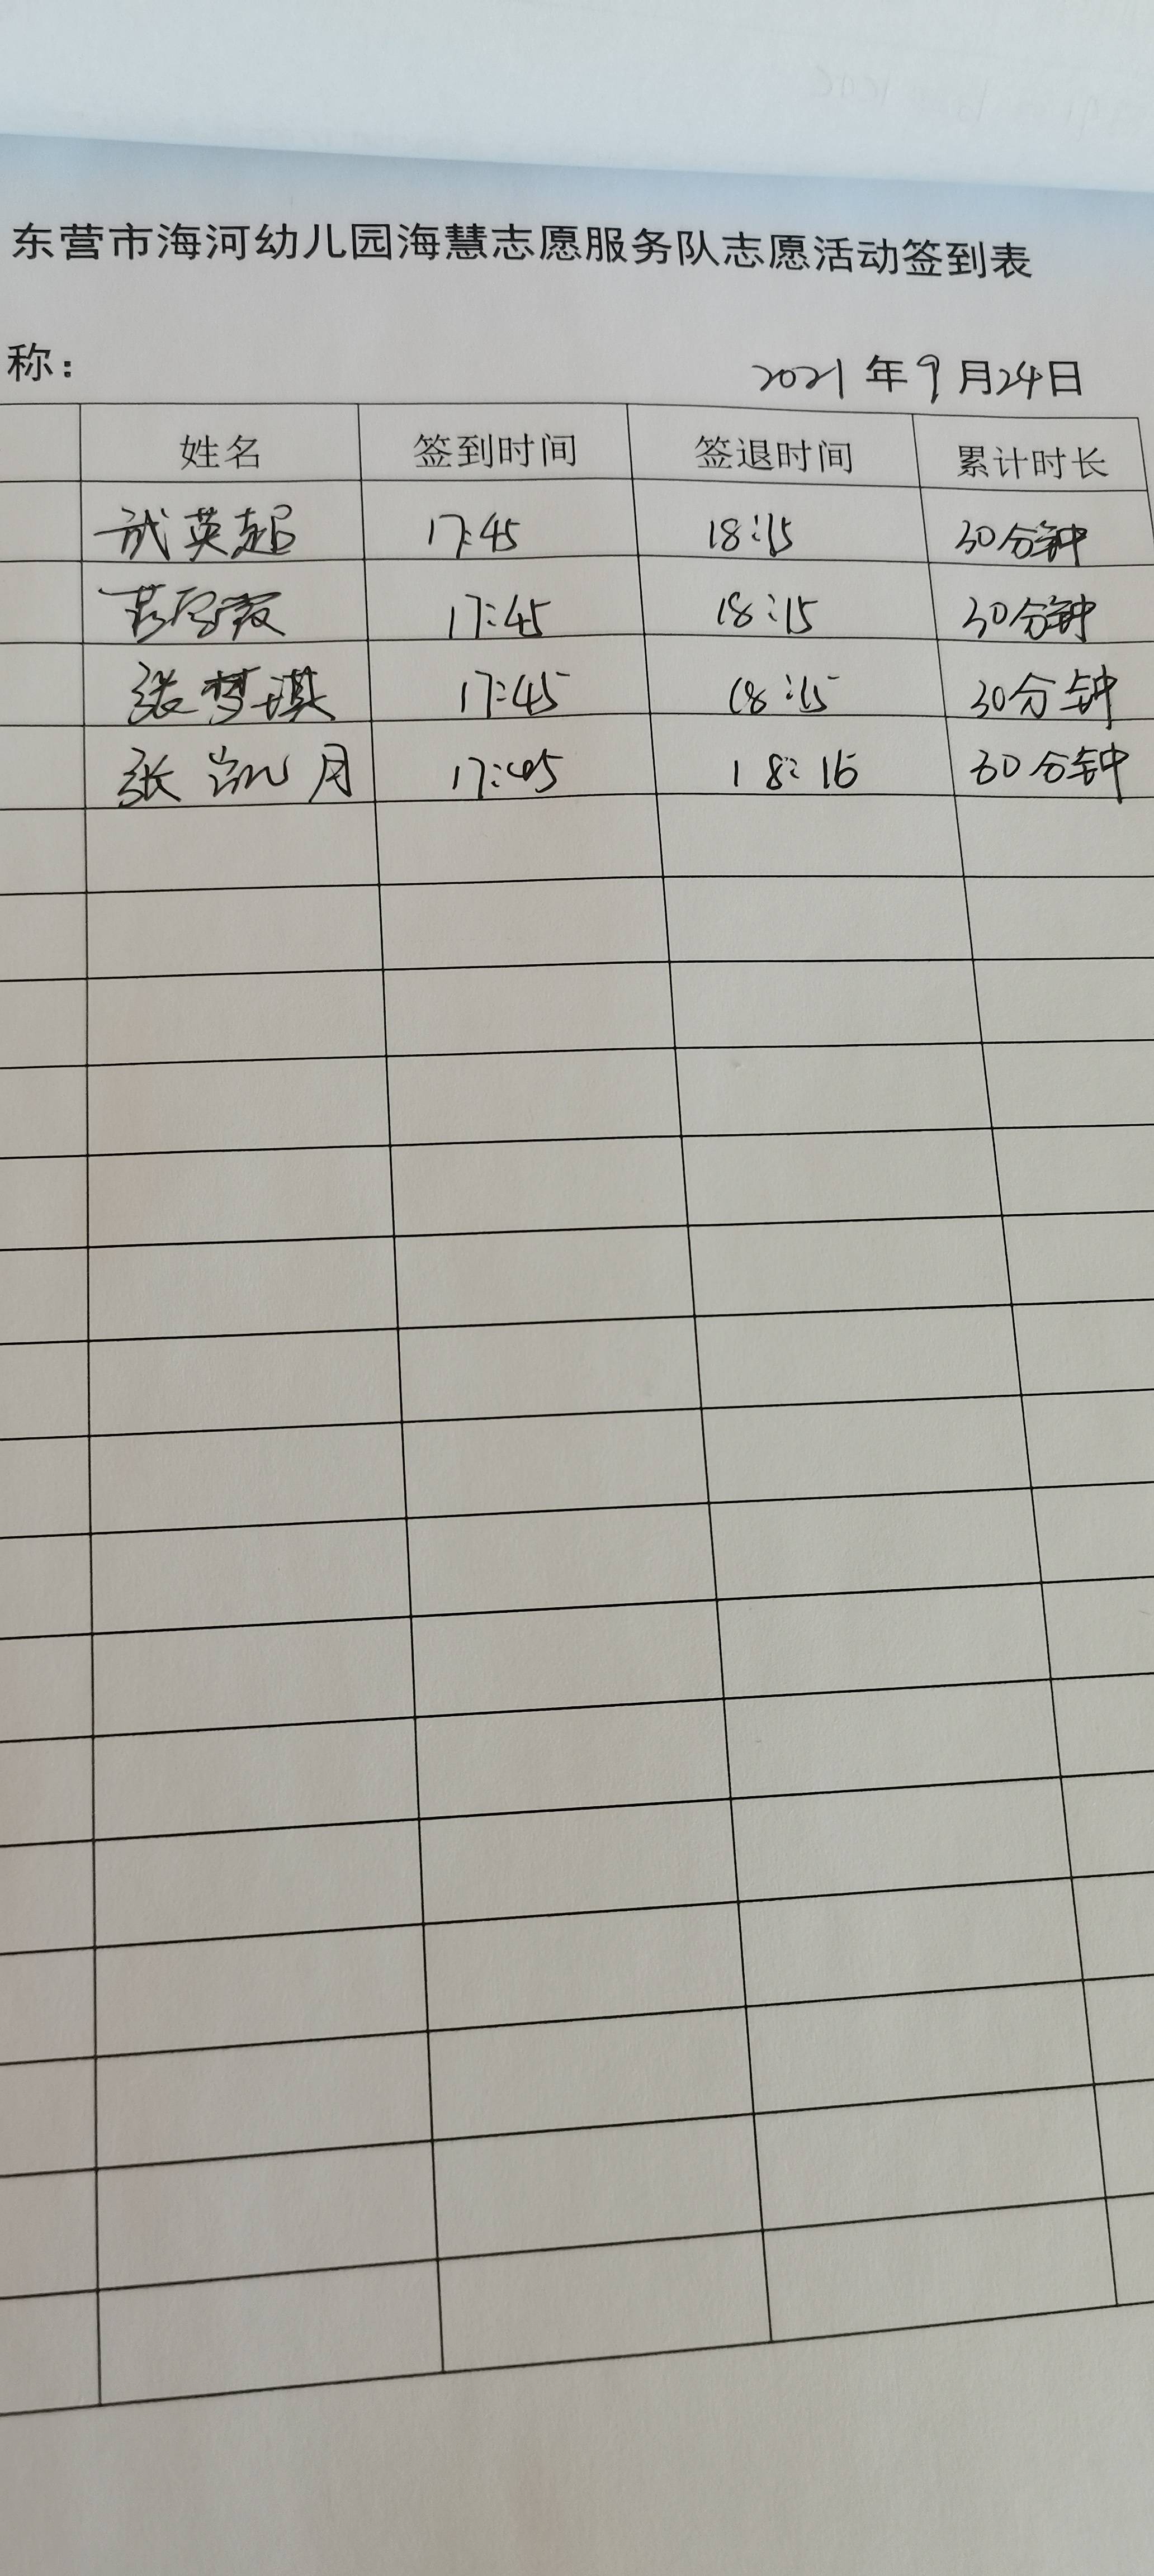 东营市海河幼儿园海慧志愿服务队志愿活动签到表
称：
2021年9月24日
姓名 签到时间 签退时间 累计时长
武英超 17:45 18:15 30分钟
17:45 18:15 30分钟
张梦琪 17:45 18:15 30分钟
张凯月 17:45 18:16 30分钟